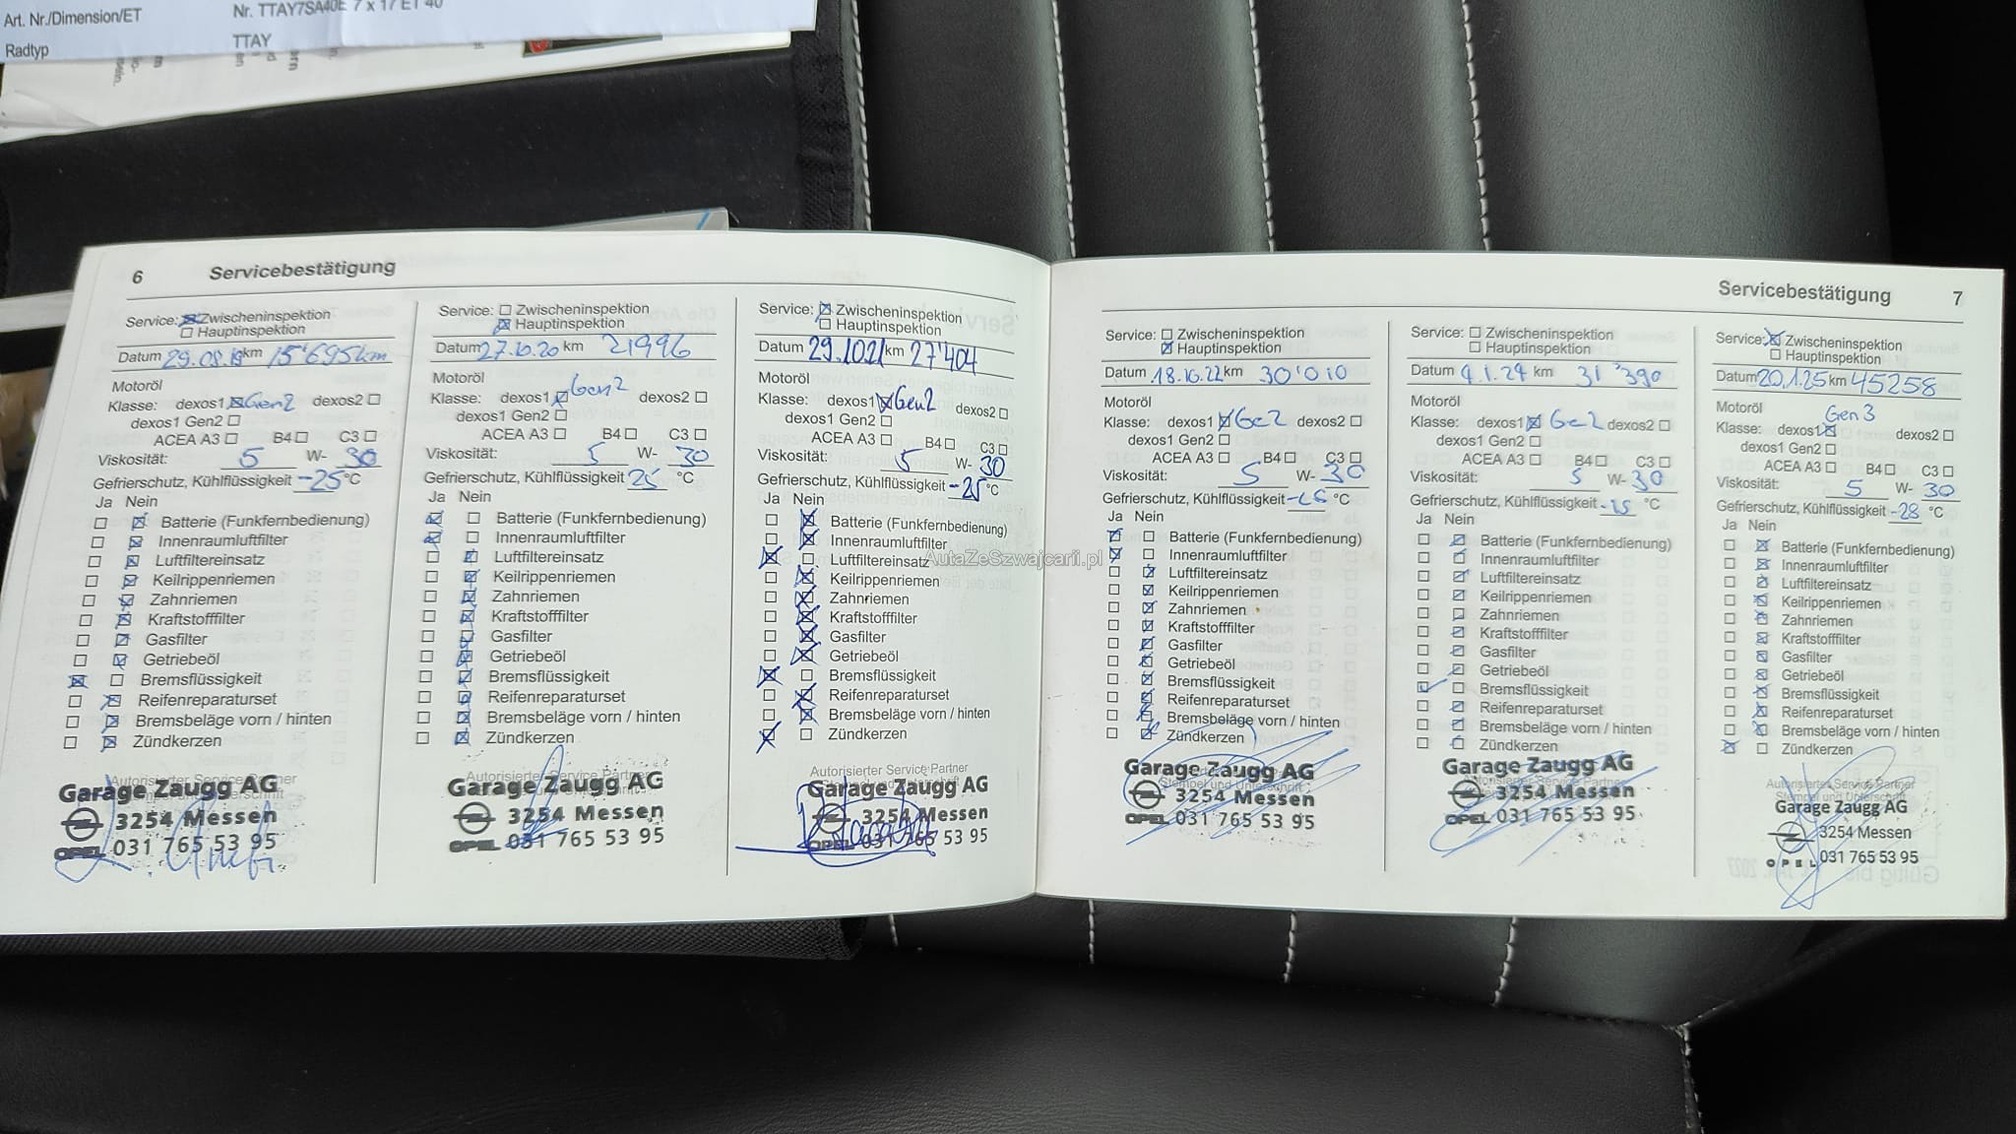 Art. Nr./Dimension/ET Nr. TTAY7SA40E 7 x 17 ET 40
Radtyp TTAY
6 Servicebestätigung
Service: Zwischeninspektion
Hauptinspektion
Datum 29.08.19 km 15'695 km
Motoröl
Klasse: dexos1 Gen2 dexos2
dexos1 Gen2
ACEA A3 B4 C3
Viskosität: 5 W- 30
Gefrierschutz, Kühlflüssigkeit -25 °C
Ja Nein
Batterie (Funkfernbedienung)
Innenraumluftfilter
Luftfiltereinsatz
Keilrippenriemen
Zahnriemen
Kraftstofffilter
Gasfilter
Getriebeöl
Bremsflüssigkeit
Reifenreparaturset
Bremsbeläge vorn / hinten
Zündkerzen
Autorisierter Service Partner
Garage Zaugg AG
3254 Messen
OPEL 031 765 53 95
Service: Zwischeninspektion
Hauptinspektion
Datum 27.10.20 km 21996
Motoröl
Klasse: dexos1 Gen2 dexos2
dexos1 Gen2
ACEA A3 B4 C3
Viskosität: 5 W- 30
Gefrierschutz, Kühlflüssigkeit 25 °C
Ja Nein
Batterie (Funkfernbedienung)
Innenraumluftfilter
Luftfiltereinsatz
Keilrippenriemen
Zahnriemen
Kraftstofffilter
Gasfilter
Getriebeöl
Bremsflüssigkeit
Reifenreparaturset
Bremsbeläge vorn / hinten
Zündkerzen
Autorisierter Service Partner
Garage Zaugg AG
3254 Messen
OPEL 031 765 53 95
Service: Zwischeninspektion
Hauptinspektion
Datum 29.10.21 km 27'404
Motoröl
Klasse: dexos1 Gen2 dexos2
dexos1 Gen2
ACEA A3 B4 C3
Viskosität: 5 W- 30
Gefrierschutz, Kühlflüssigkeit -25 °C
Ja Nein
Batterie (Funkfernbedienung)
Innenraumluftfilter
Luftfiltereinsatz
Keilrippenriemen
Zahnriemen
Kraftstofffilter
Gasfilter
Getriebeöl
Bremsflüssigkeit
Reifenreparaturset
Bremsbeläge vorn / hinten
Zündkerzen
Autorisierter Service Partner
Garage Zaugg AG
3254 Messen
OPEL 031 765 53 95
AutaZeSzwajcarii.pl
Servicebestätigung 7
Service: Zwischeninspektion
Hauptinspektion
Datum 18.10.22 km 30'010
Motoröl
Klasse: dexos1 Ge2 dexos2
dexos1 Gen2
ACEA A3 B4 C3
Viskosität: 5 W- 30
Gefrierschutz, Kühlflüssigkeit -25 °C
Ja Nein
Batterie (Funkfernbedienung)
Innenraumluftfilter
Luftfiltereinsatz
Keilrippenriemen
Zahnriemen
Kraftstofffilter
Gasfilter
Getriebeöl
Bremsflüssigkeit
Reifenreparaturset
Bremsbeläge vorn / hinten
Zündkerzen
Stempel und Unterschrift
Garage Zaugg AG
3254 Messen
OPEL 031 765 53 95
Service: Zwischeninspektion
Hauptinspektion
Datum 4.1.24 km 31'390
Motoröl
Klasse: dexos1 Ge2 dexos2
dexos1 Gen2
ACEA A3 B4 C3
Viskosität: 5 W- 30
Gefrierschutz, Kühlflüssigkeit °C
Ja Nein
Batterie (Funkfernbedienung)
Innenraumluftfilter
Luftfiltereinsatz
Keilrippenriemen
Zahnriemen
Kraftstofffilter
Gasfilter
Getriebeöl
Bremsflüssigkeit
Reifenreparaturset
Bremsbeläge vorn / hinten
Zündkerzen
Garage Zaugg AG
3254 Messen
OPEL 031 765 53 95
Service: Zwischeninspektion
Hauptinspektion
Datum 20.1.25 km 45258
Motoröl Gen 3
Klasse: dexos1 dexos2
dexos1 Gen2
ACEA A3 B4 C3
Viskosität: 5 W- 30
Gefrierschutz, Kühlflüssigkeit -28 °C
Ja Nein
Batterie (Funkfernbedienung)
Innenraumluftfilter
Luftfiltereinsatz
Keilrippenriemen
Zahnriemen
Kraftstofffilter
Gasfilter
Getriebeöl
Bremsflüssigkeit
Reifenreparaturset
Bremsbeläge vorn / hinten
Zündkerzen
Autorisierter Service Partner
Stempel und Unterschrift
Garage Zaugg AG
3254 Messen
OPEL 031 765 53 95